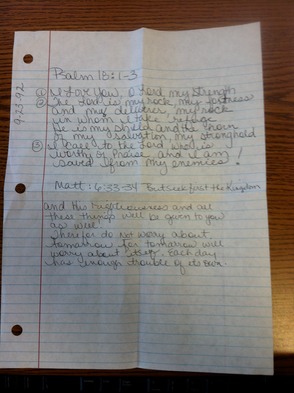 9-23-92
Psalm 18:1-3
① I Love You, O Lord, my Strength
② The Lord is my rock, my fortress
and my deliverer, my rock
in whom I take refuge
He is my shield and the horn
of my salvation, my stronghold
③ I call to the Lord, who is
worthy of Praise, and I am
saved from my enemies!
Matt: 6:33-34 But seek first the Kingdom
and His Righteousness and all
these things will be given to you
as well.
Therefor do not worry about
tomorrow for tomorrow will
worry about itself. Each day
has enough trouble of its own